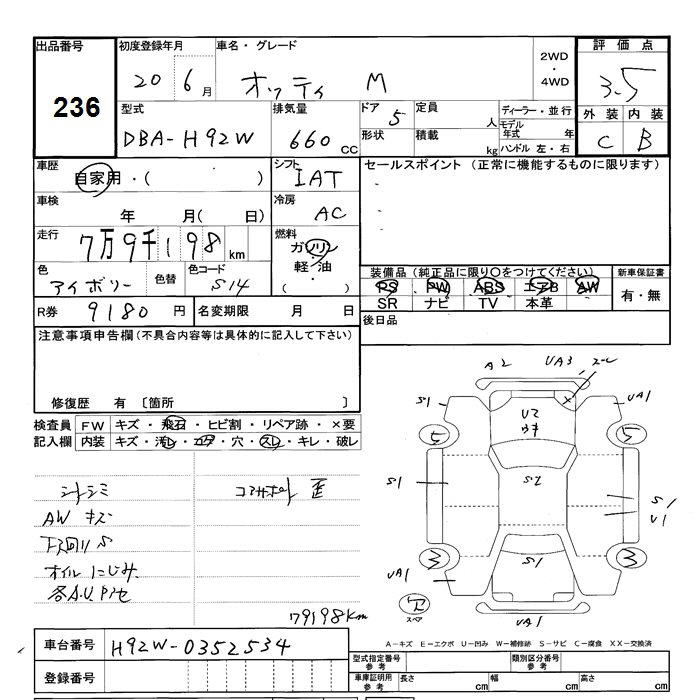 出品番号 初度登録年月 車名・グレード 2WD・4WD 評価点
236
20年 6月 オッティ M 3.5
型式 排気量 ドア 定員 人 ディーラー・並行 外装 内装
DBA-H92W 660 cc 5 モデル年式 年 C B
形状 積載 kg ハンドル 左・右
車歴 シフト セールスポイント (正常に機能するものに限ります)
自家用・( ) IAT
車検 年 月( 日) 冷房 AC
走行 7万9千198 km 燃料 ガソリン
軽・油
( )
色 色替 色コード 装備品 (純正品に限り〇をつけてください) 新車保証書
アイボリー S14 PS PW ABS エアB AW 有・無
SR ナビ TV 本革
R券 9180 円 名変期限 月 日 後日品
注意事項申告欄 (不具合内容等は具体的に記入して下さい)
修復歴 有 〔箇所 〕
検査員 FW キズ・飛石・ヒビ割・リペア跡・×要
記入欄 内装 キズ・汚レ・コゲ・穴・スレ・キレ・破レ
A2 UA3
S1 UA1
U2
5 5
シートシミ S1 S2 S1
AW キズ U1
下回り S
オイルにじみ 3 S1 3
UA1
スペア UA1
79198Km
車台番号 H92W-0352534
A-キズ E-エクボ U-凹み W-補修跡 S-サビ C-腐食 XX-交換済
登録番号
型式指定番号 参考 類別区分番号 参考
車庫証明用 参考 長さ cm 幅 cm 高さ cm